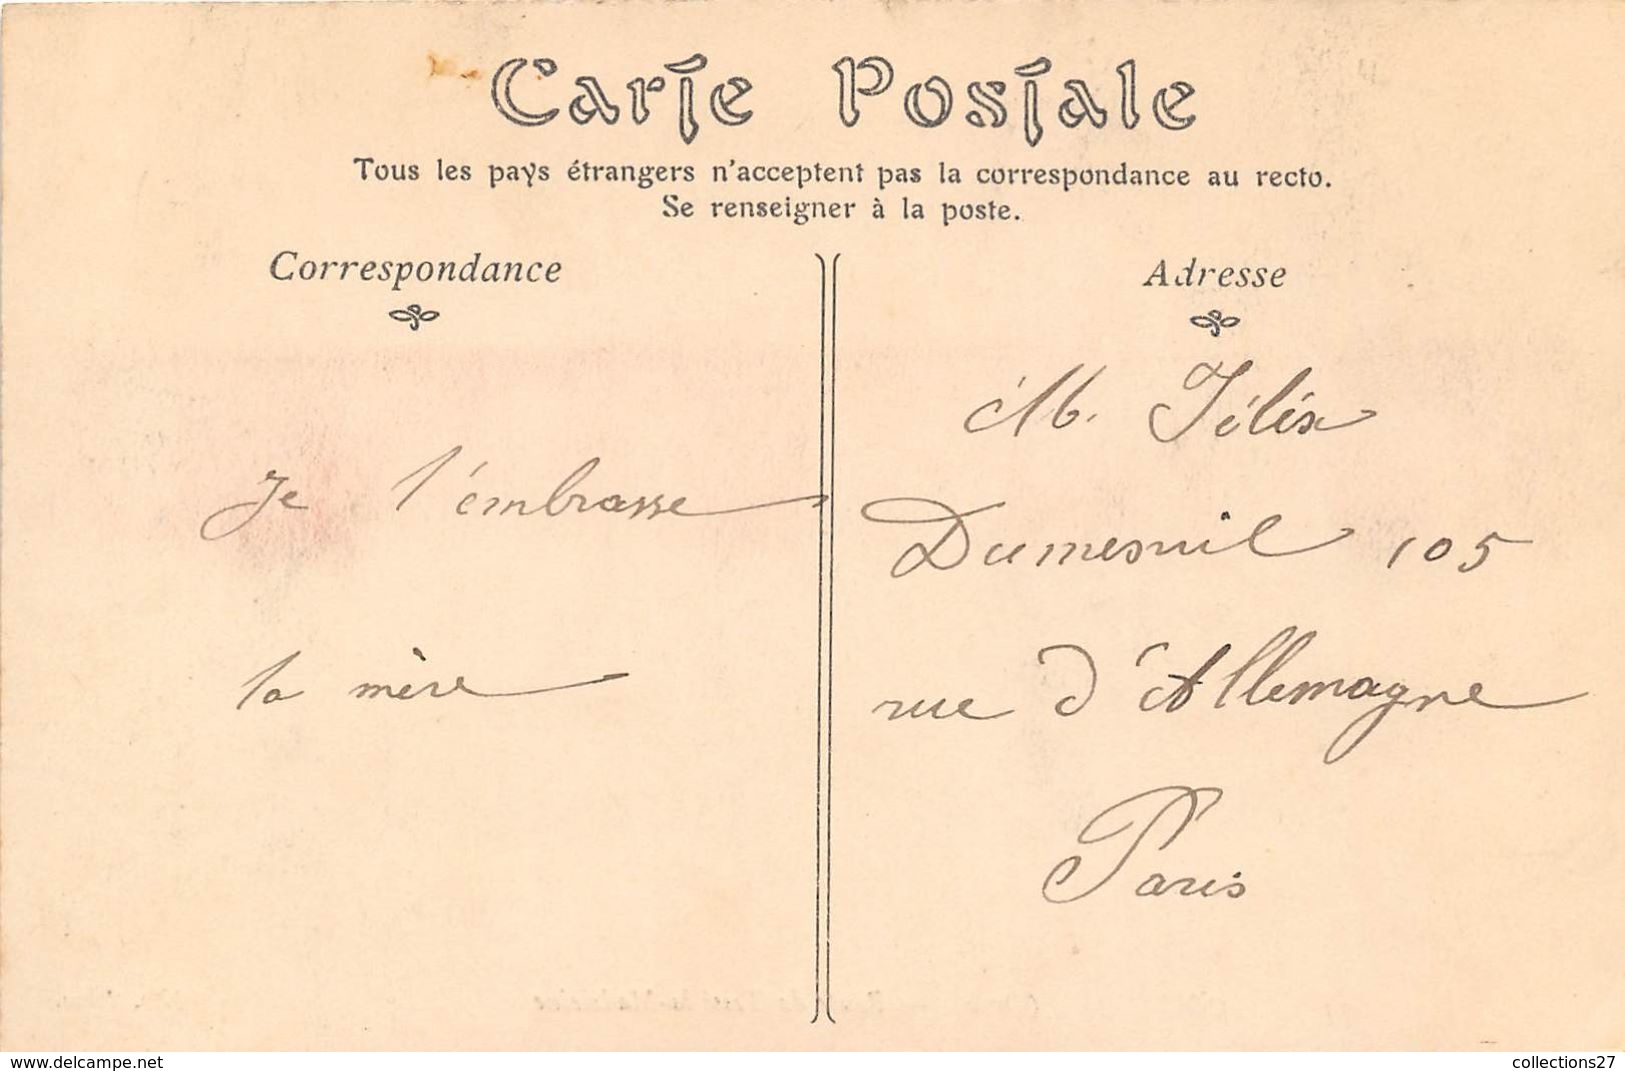 Carte Postale
Tous les pays étrangers n'acceptent pas la correspondance au recto.
Se renseigner à la poste.
Correspondance
Je t'embrasse
ta mère
Adresse
M. Félix
Dumesnil 105
rue d'Allemagne
Paris
www.delcampe.net
collections27